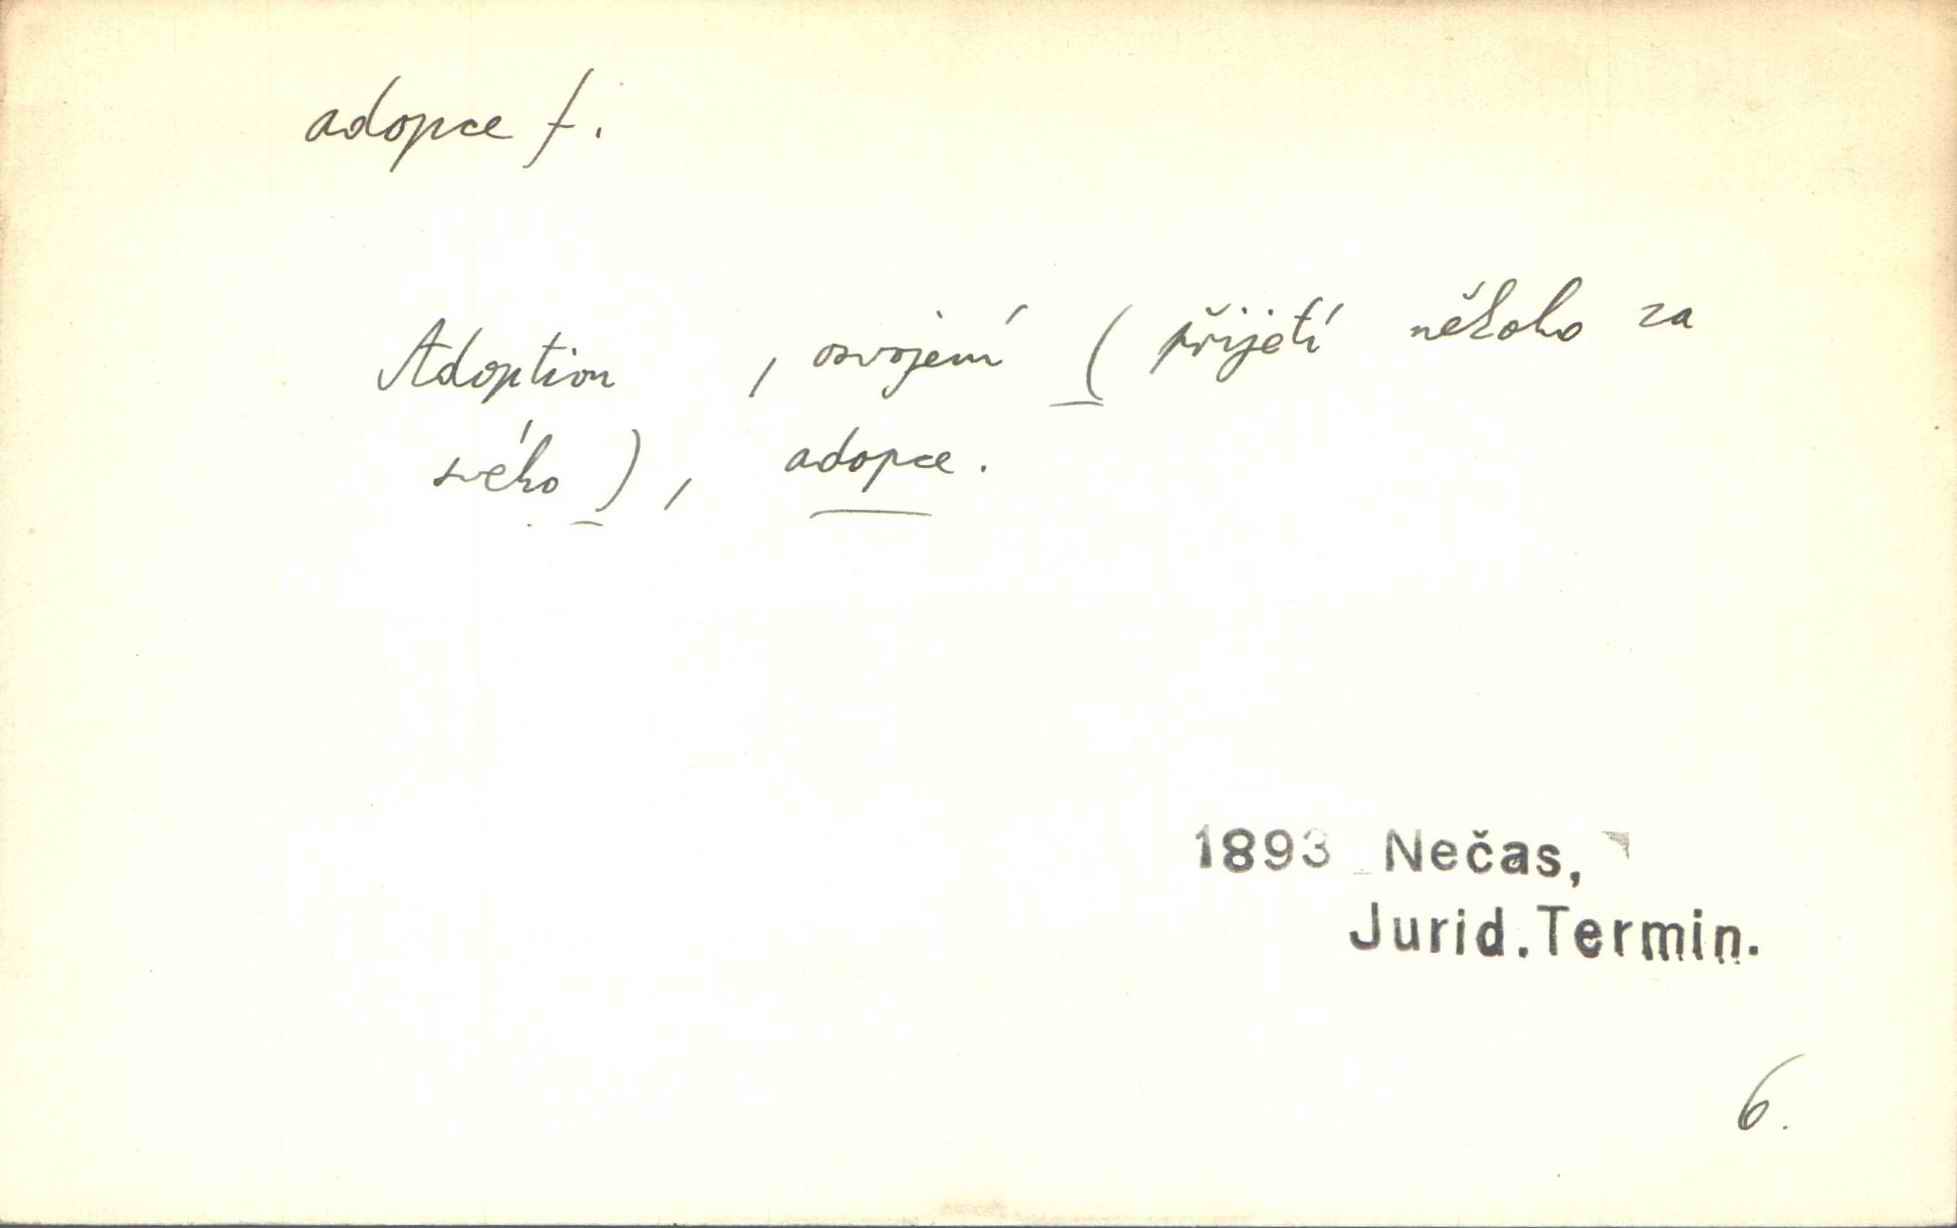 adopce f.
Adoption , osvojení ( přijetí někoho za
svého ) , adopce .
1893 Nečas,
Jurid. Termin.
6.